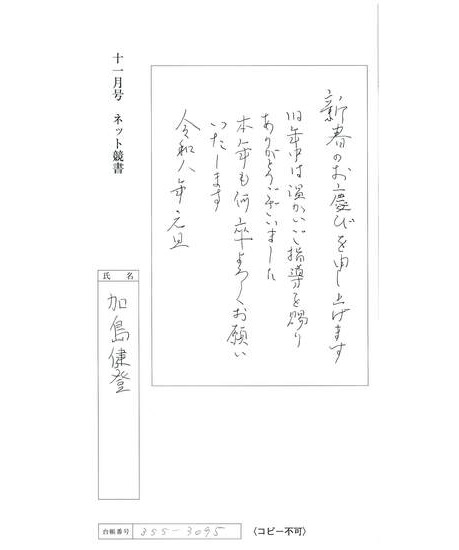 十一月号 ネット競書
新春のお慶びを申し上げます
旧年中は温かいご指導を賜り
ありがとうございました
本年も何卒よろしくお願い
いたします
令和八年 元旦
氏名
加島健登
台帳番号 355-3095
〈コピー不可〉